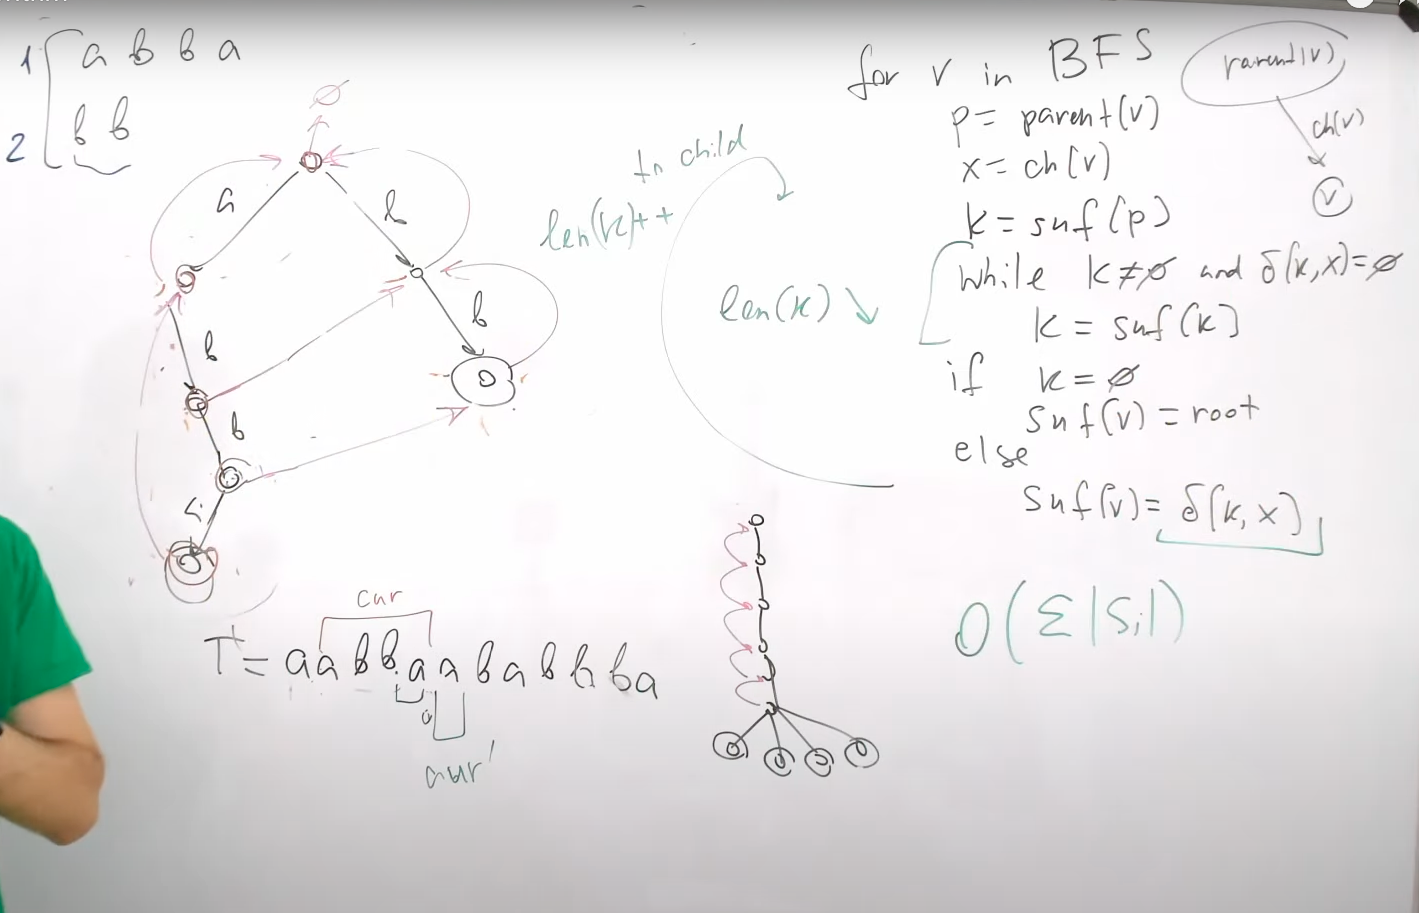 1 a b b a
2 b b
∅
a
b
b
b
b
a
to child
len(k)++
len(k) ↘
for v in BFS
p = parent(v)
x = ch(v)
k = suf(p)
while k ≠ ∅ and δ(k,x) = ∅
k = suf(k)
if k = ∅
suf(v) = root
else
suf(v) = δ(k,x)
parent(v)
ch(v)
v
O(Σ|Si|)
cur
T = a a b b a a b a b b b a
a
cur'